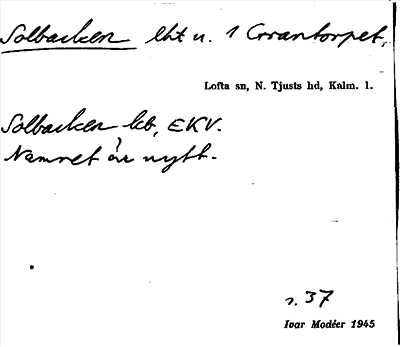 Solbacken lht u. 1 Grantorpet,
Lofta sn, N. Tjusts hd, Kalm. l.
Solbacken lcb, EKV.
Namnet är nytt.
s. 37
Ivar Modéer 1945